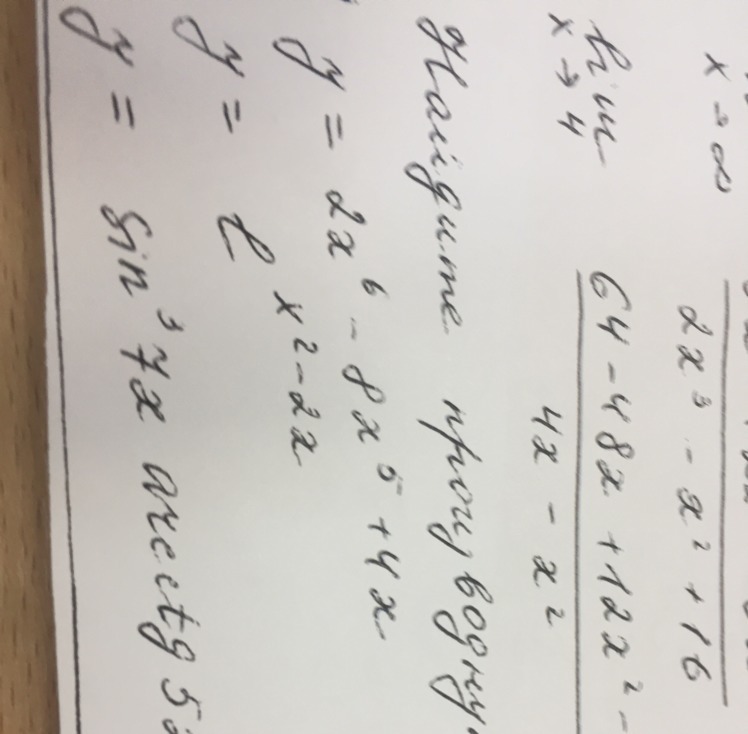 x → ∞ 2x³ - x² + 16
lim 64 - 48x + 12x² -
x → 4 4x - x²
Найдите производну
y = 2x⁶ - 8x⁵ + 4x
y = e^(x² - 2x)
y = sin³ 7x arcctg 5x